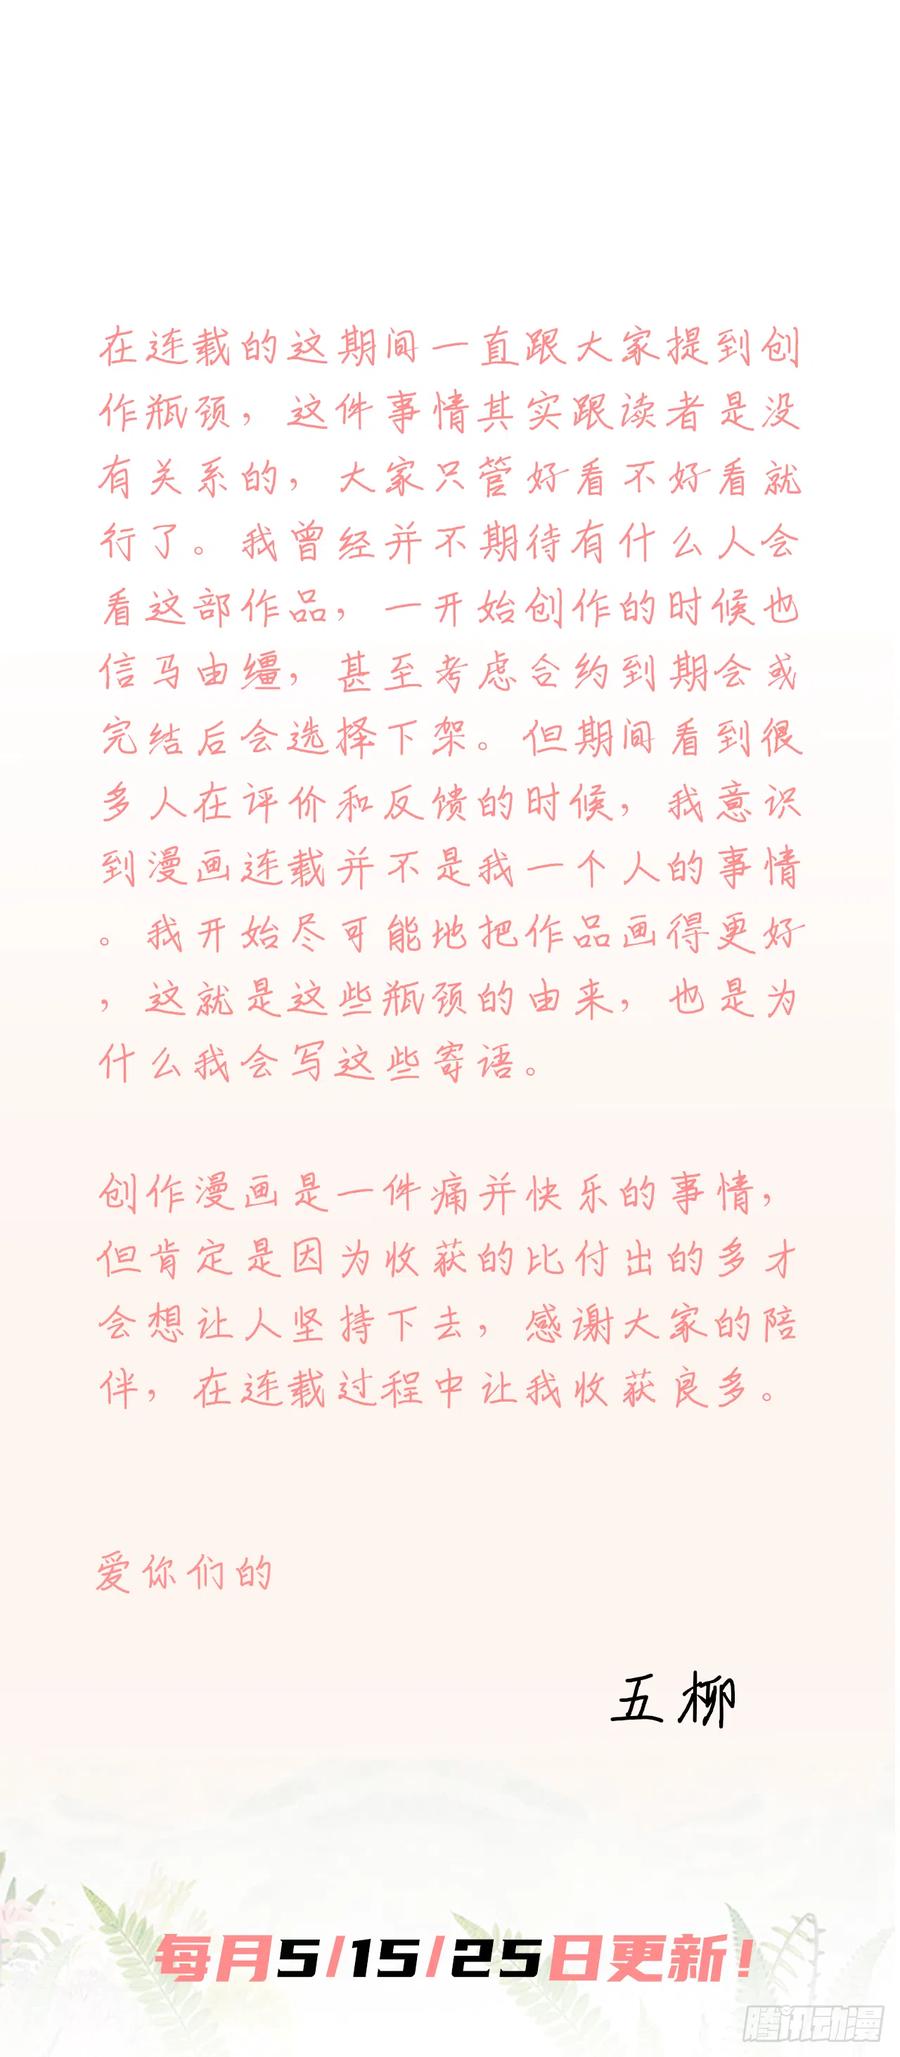 在连载的这期间一直跟大家提到创
作瓶颈，这件事情其实跟读者是没
有关系的，大家只管好看不好看就
行了。我曾经并不期待有什么人会
看这部作品，一开始创作的时候也
信马由缰，甚至考虑合约到期会或
完结后会选择下架。但期间看到很
多人在评价和反馈的时候，我意识
到漫画连载并不是我一个人的事情
。我开始尽可能地把作品画得更好
，这就是这些瓶颈的由来，也是为
什么我会写这些寄语。
创作漫画是一件痛并快乐的事情，
但肯定是因为收获的比付出的多才
会想让人坚持下去，感谢大家的陪
伴，在连载过程中让我收获良多。
爱你们的
五柳
每月5/15/25日更新！
腾讯动漫